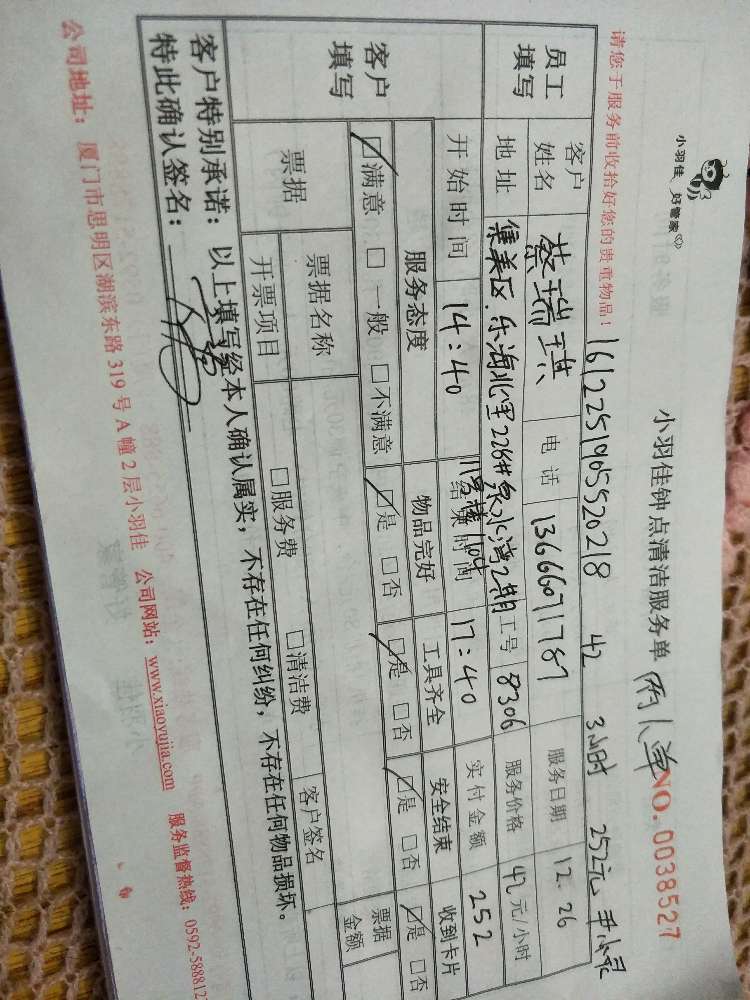 小羽佳 好管家
小羽佳钟点清洁服务单 两人单
请您于服务前收拾好您的贵重物品！ NO. 0038527
1612251905520218 42 3小时 252元
员工填写 客户姓名 蔡瑞琪 电话 13666071787 服务日期 12.26
地址 集美区.乐海北里226#泉水湾2期 工号 8306 服务价格 42元/小时
11号楼1104
客户填写 开始时间 14:40 结束时间 17:40 实付金额 252
服务态度 物品完好 工具齐全 安全结束 收到卡片
☑满意 □一般 □不满意 ☑是 □否 ☑是 □否 ☑是 □否 ☑是 □否
票据 票据名称 客户签名 票据金额
开票项目 □服务费 □清洁费
客户特别承诺：以上填写经本人确认属实，不存在任何纠纷，不存在任何物品损坏。
特此确认签名：
公司地址：厦门市思明区湖滨东路319号A幢2层小羽佳 公司网站：www.xiaoyujia.com 服务监督热线：0592-588812